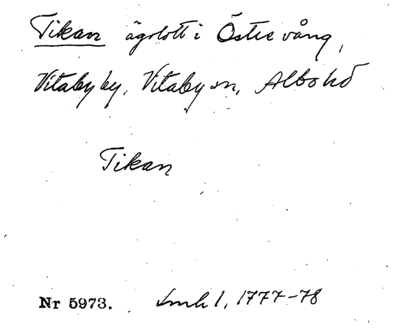 Tikan ägolott i Öste vång,
Vitaby by, Vitaby sn, Albo hd
Tikan
Nr 5973. Lmh 1, 1777-78